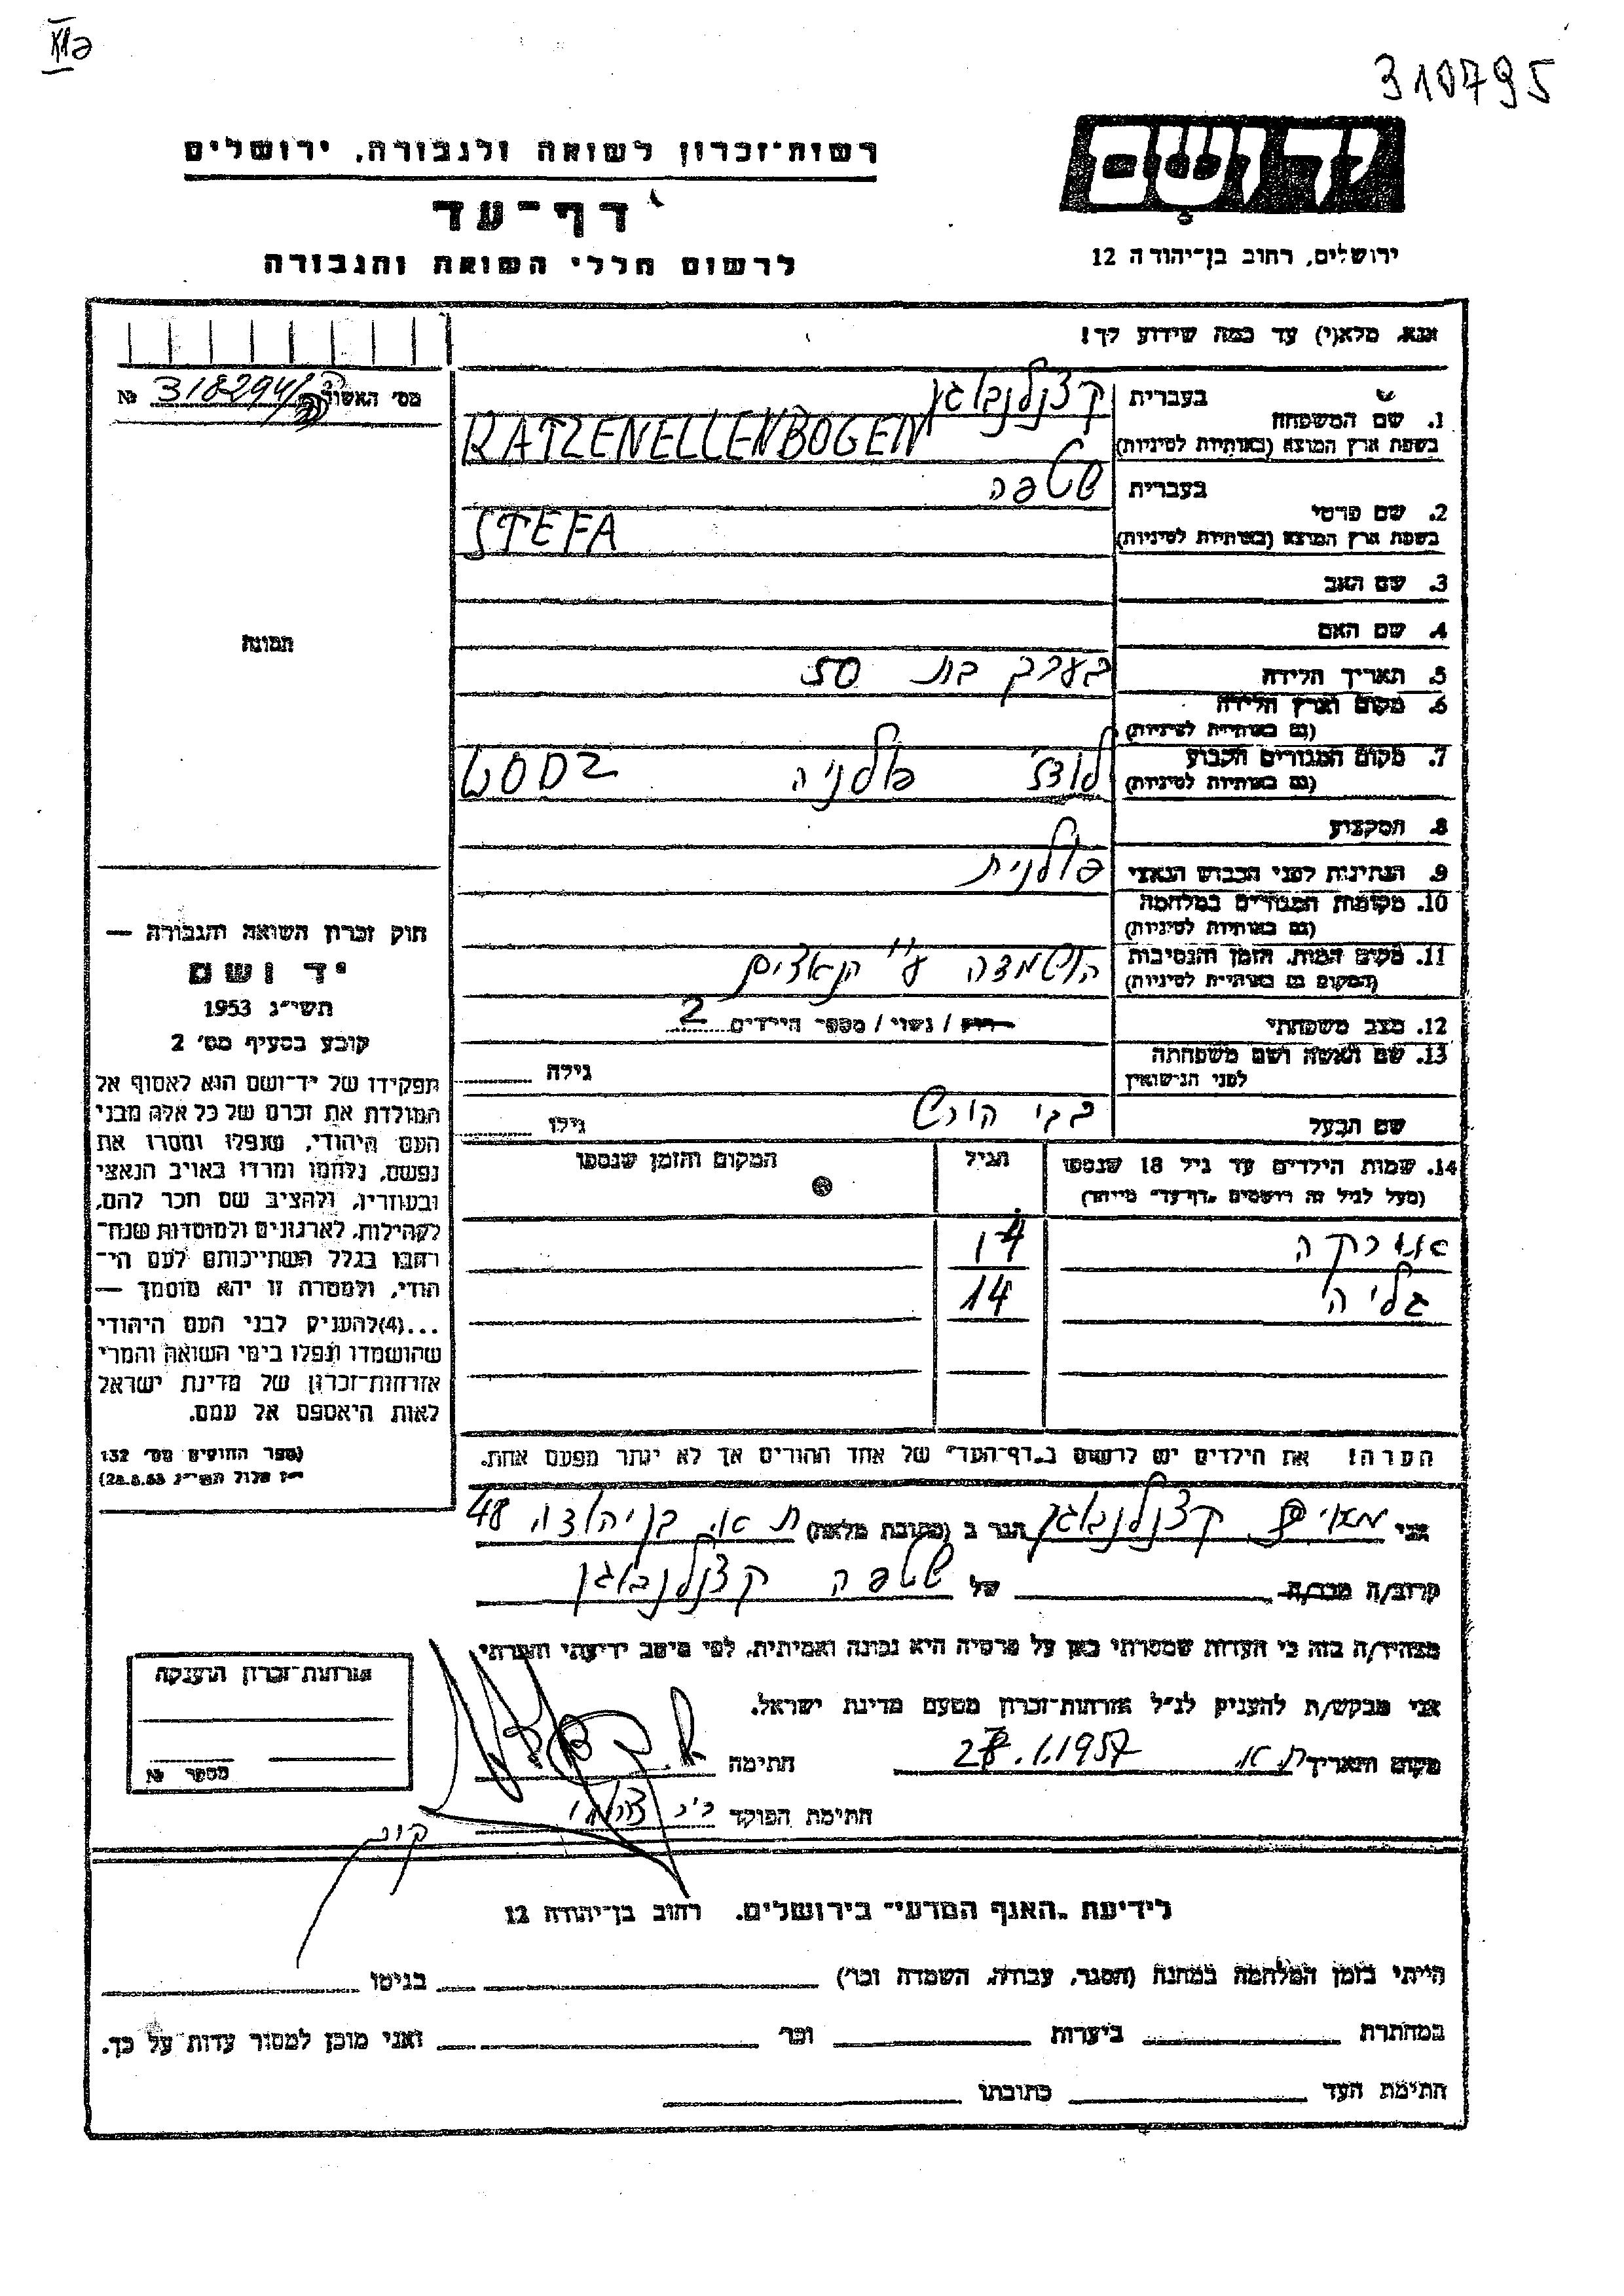 310795
רשות-זכרון לשואה ולגבורה, ירושלים
יד ושם
דף-עד
ירושלים, רחוב בן-יהודה 12
לרשום חללי השואה והגבורה
אנא, מלא(י) עד כמה שידוע לך!
מס' האשור № 318294/
1. שם המשפחה
בעברית קצנלנבוגן
בשפת ארץ המוצא (באותיות לטיניות) KATZENELLENBOGEN
2. שם פרטי
בעברית שטפה
בשפת ארץ המוצא (באותיות לטיניות) STEFA
3. שם האב
4. שם האם
תמונה
5. תאריך הלידה בערך בת 50
6. מקום וארץ הלידה
(גם באותיות לטיניות)
7. מקום המגורים הקבוע
(גם באותיות לטיניות) לודז' פולניה LODZ
8. המקצוע
9. הנתינות לפני הכבוש הנאצי פולנית
10. מקומות המגורים במלחמה
(גם באותיות לטיניות)
11. מקום המות, הזמן והנסיבות
(המקום גם באותיות לטיניות) הושמדה ע"י הנאצים
12. מצב משפחתי רווק / נשוי / מספר הילדים 2
13. שם האשה ושם משפחתה
לפני הנישואין גילה
שם הבעל גילו
14. שמות הילדים עד גיל 18 שנספו
(מעל לגיל זה רושמים "דף-עד" מיוחד)
הגיל
המקום והזמן שנספו
14
14
חוק זכרון השואה והגבורה —
יד ושם
תשי"ג 1953
קובע בסעיף מס' 2
תפקידו של יד-ושם הוא לאסוף אל
המולדת את זכרם של כל אלה מבני
העם היהודי, שנפלו ומסרו את
נפשם, נלחמו ומרדו באויב הנאצי
ובעוזריו, ולהציב שם וזכר להם,
לקהילות, לארגונים ולמוסדות שנח־
רבו בגלל השתייכותם לעם הי־
הודי, ולמטרה זו יהא מוסמך —
...(4)להעניק לבני העם היהודי
שהושמדו ונפלו בימי השואה והמרי
אזרחות-זכרון של מדינת ישראל
לאות היאספם אל עמם.
(ספר החוקים מס' 132
י"ז אלול תשי"ג 28.8.53)
הערה! את הילדים יש לרשום ב"דף-העד" של אחד ההורים אך לא יותר מפעם אחת.
אני קצנלנבוגן הגר ב (כתובת מלאה) ת"א, בן יהודה 48
קרוב/ה מכר/ה של שטפה קצנלנבוגן
מצהיר/ה בזה כי העדות שמסרתי כאן על פרטיה היא נכונה ואמיתית, לפי מיטב ידיעתי והכרתי
אני מבקש/ת להעניק לנ"ל אזרחות-זכרון מטעם מדינת ישראל.
מקום ותאריך ת"א 28.1.1957 חתימה
חתימת הפוקד
אזרחות-זכרון הוענקה
מספר №
לידיעת "האגף המדעי" בירושלים, רחוב בן-יהודה 12
הייתי בזמן המלחמה במחנה (הסגר, עבודה, השמדה וכו') בגיטו
במחתרת ביערות וכו' ואני מוכן למסור עדות על כך.
חתימת העד כתובתו